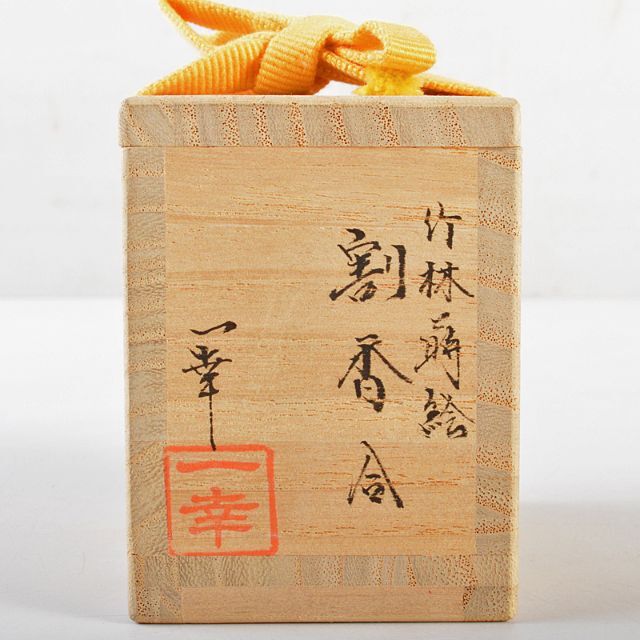 竹林蒔絵
割香合
一幸
一幸